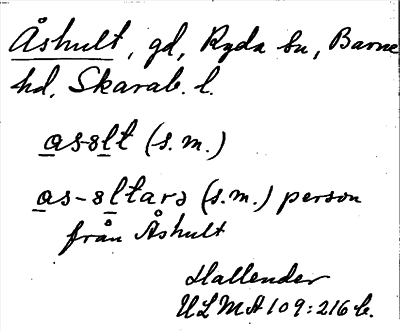 Åshult, gd, Ryda sn, Barne
hd, Skarab. l.
as-slt (s.m.)
as-sltarə (s.m.) person
från Åshult
Hallender
ULMA 109:216 b.